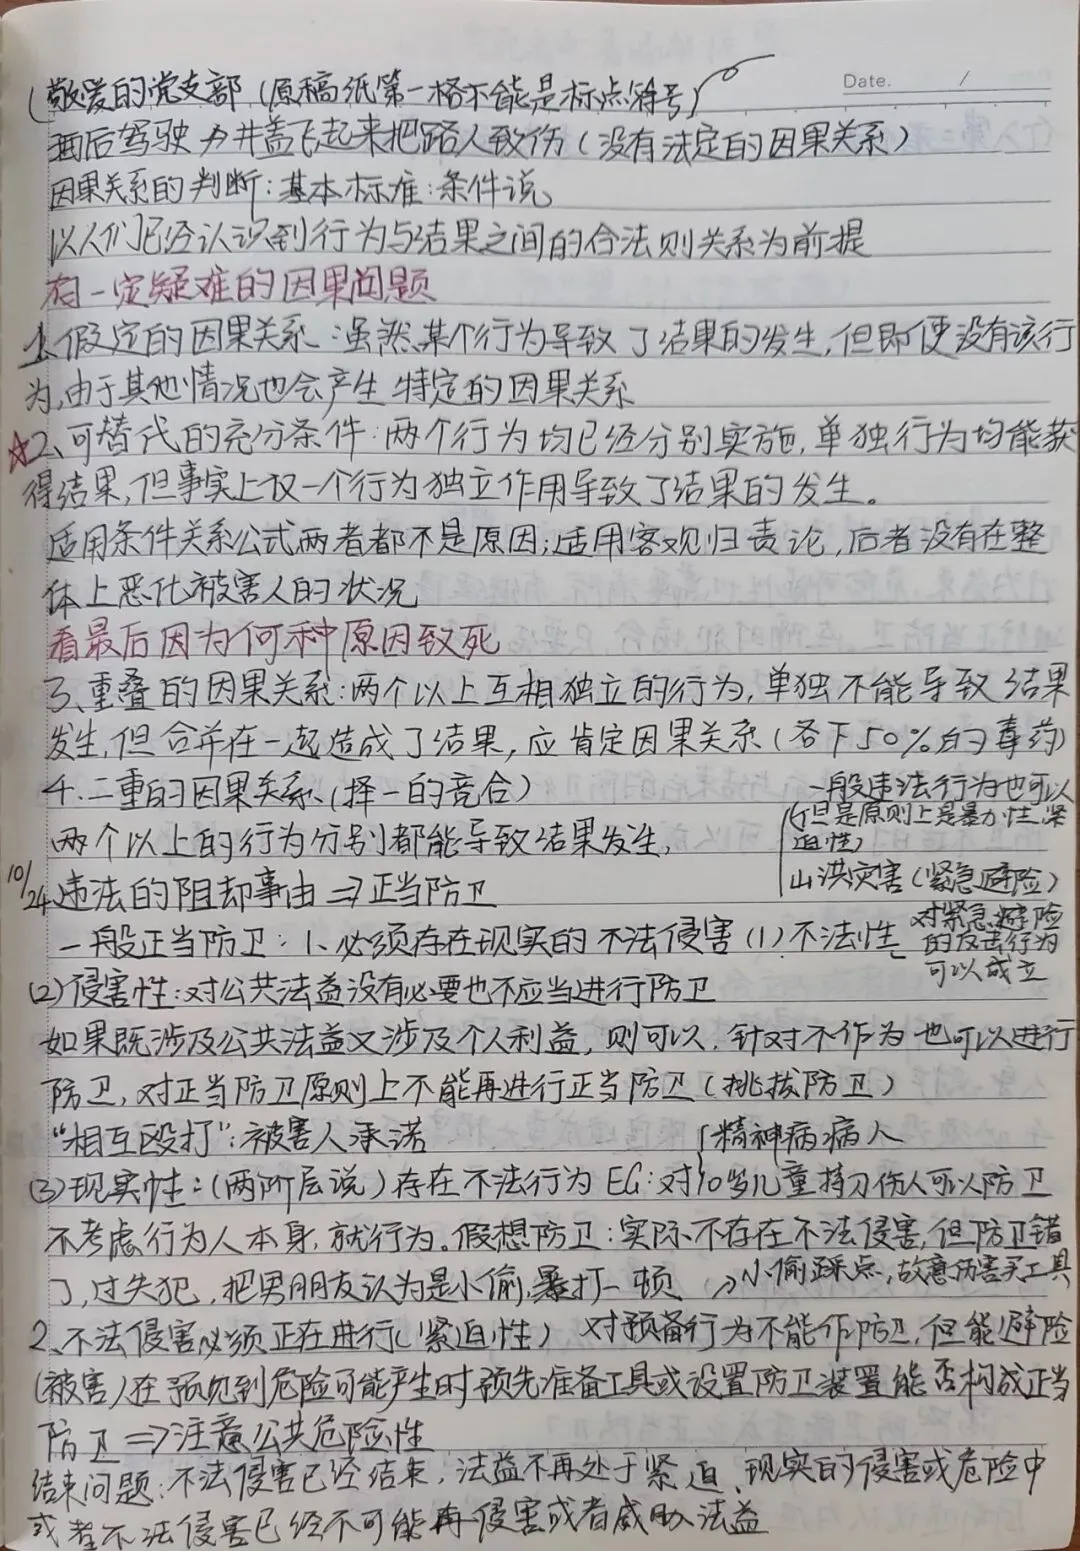 Date. /
(敬爱的党支部(原稿纸第一格不能是标点符号)
酒后驾驶 井盖飞起来把路人致伤(没有法定的因果关系)
因果关系的判断:基本标准:条件说、
以人们已经认识到行为与结果之间的合法则关系为前提
有一定疑难的因果问题
1、假定的因果关系:虽然某个行为导致了结果的发生,但即使没有该行
为,由于其他情况也会产生特定的因果关系
☆2、可替代的充分条件:两个行为均已经分别实施,单独行为均能获
得结果,但事实上仅一个行为独立作用导致了结果的发生。
适用条件关系公式两者都不是原因;适用客观归责论,后者没有在整
体上恶化被害人的状况
看最后因为何种原因致死
3、重叠的因果关系:两个以上互相独立的行为,单独不能导致结果
发生,但合并在一起造成了结果,应肯定因果关系(各下50%的毒药)
4.二重的因果关系(择一的竞合)
两个以上的行为分别都能导致结果发生,
一般违法行为也可以
(但是原则上是暴力性,紧
迫性)
山洪灾害(紧急避险)
10/24 违法的阻却事由⇒正当防卫
一般正当防卫:1、必须存在现实的不法侵害(1)不法性
对紧急避险
的反击行为
可以成立
(2)侵害性:对公共法益没有必要也不应当进行防卫
如果既涉及公共法益又涉及个人利益,则可以,针对不作为也可以进行
防卫,对正当防卫原则上不能再进行正当防卫(挑拨防卫)
“相互殴打”:被害人承诺
精神病病人
(3)现实性:(两阶层说)存在不法行为 EG:对10岁儿童持刀伤人可以防卫
不考虑行为人本身,就行为。假想防卫:实际不存在不法侵害,但防卫错
了,过失犯,把男朋友认为是小偷,暴打一顿
小偷踩点,故意伤害买工具
2、不法侵害必须正在进行(紧迫性) 对预备行为不能作防卫,但能避险
(被害人)在预见到危险可能产生时预先准备工具或设置防卫装置能否构成正当
防卫⇒注意公共危险性
结束问题:不法侵害已经结束,法益不再处于紧迫、现实的侵害或危险中
或者不法侵害已经不可能再侵害或者威胁法益